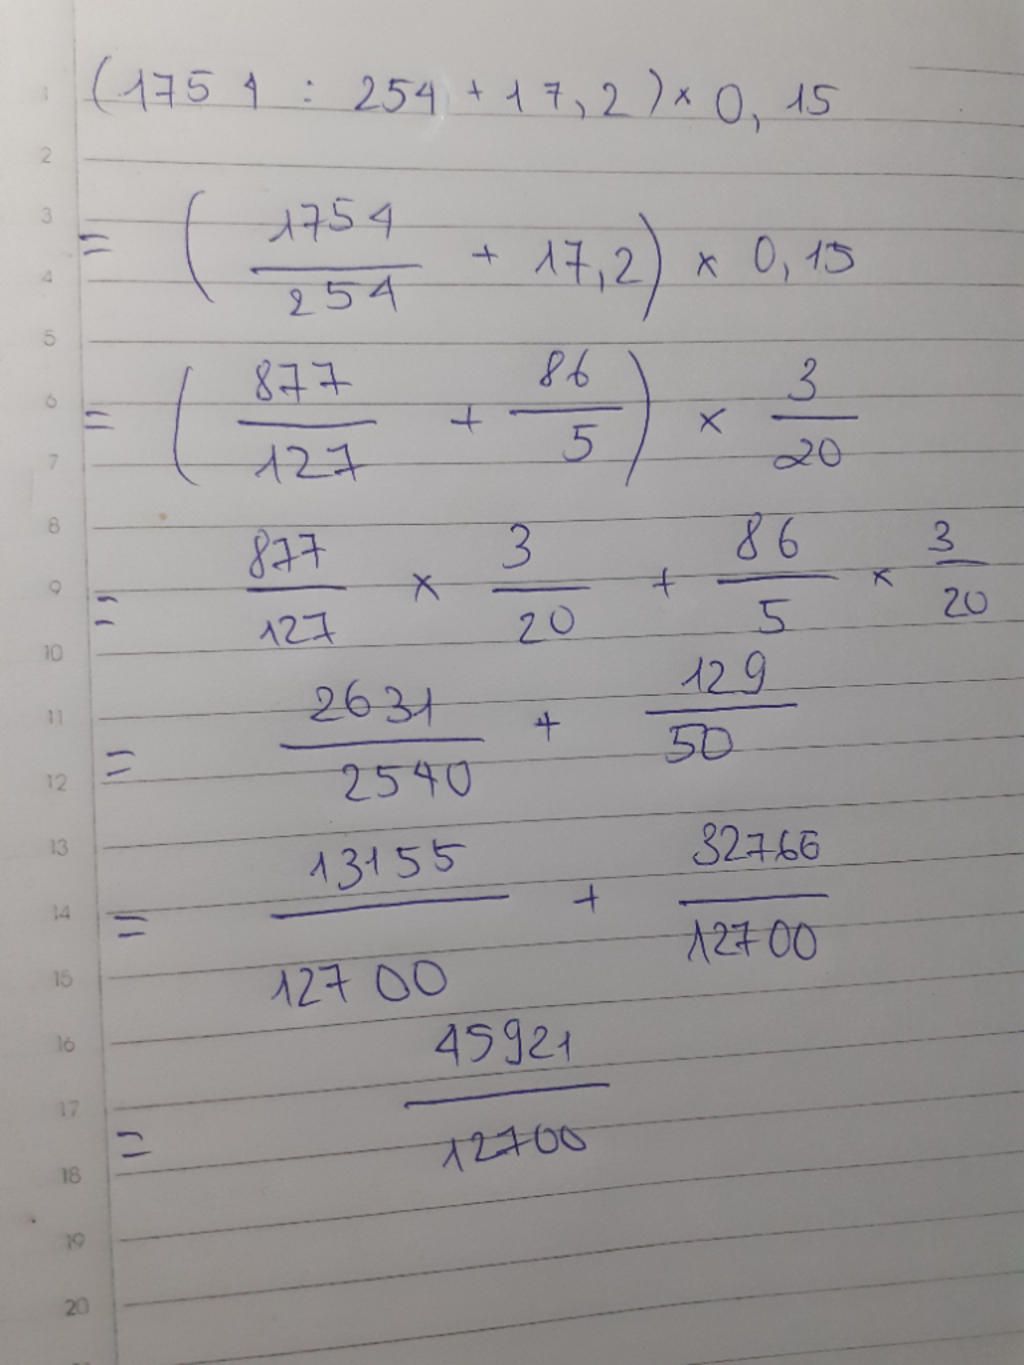 1 (1754 : 254 + 17,2) × 0,15
2
3 = (1754/254 + 17,2) × 0,15
4
5
6 = (877/127 + 86/5) × 3/20
7
8
9 = 877/127 × 3/20 + 86/5 × 3/20
10
11 = 2631/2540 + 129/50
12
13
14 = 13155/12700 + 32766/12700
15
16
17 = 45921/12700
18
19
20